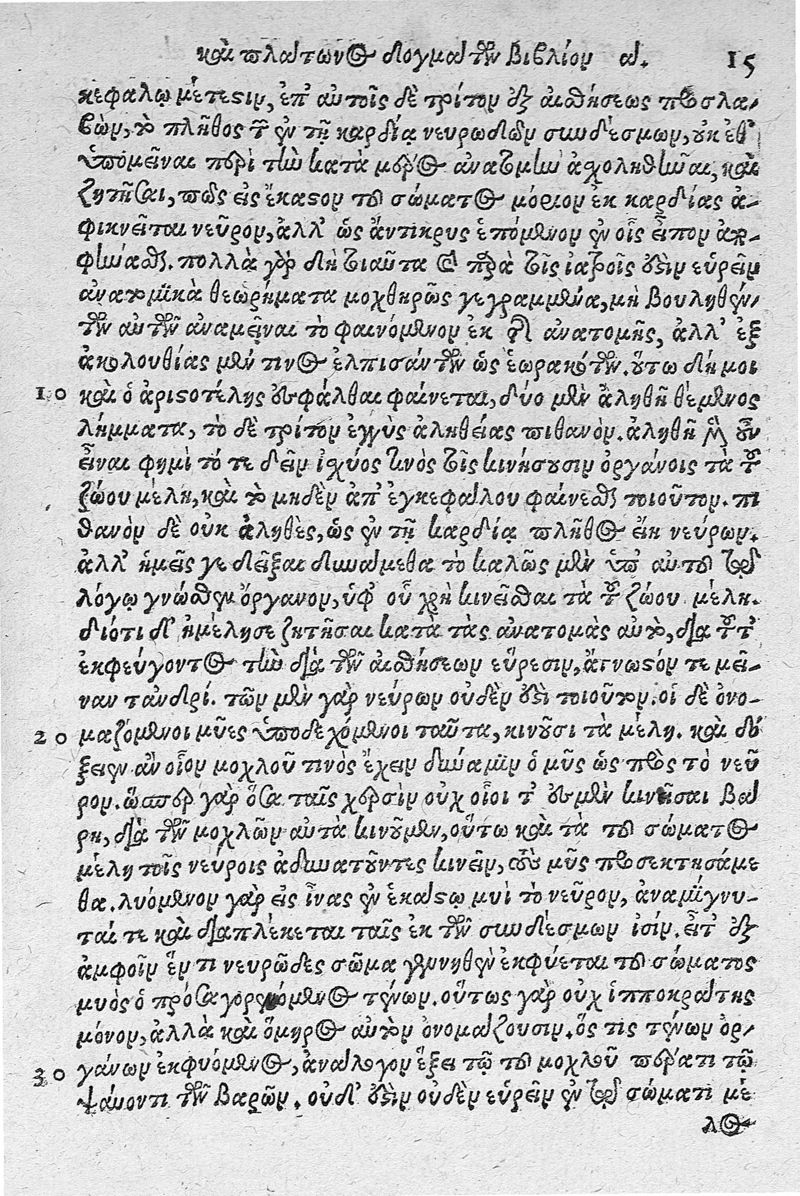 καὶ πλάτωνος δογμάτων βιβλίον α. 15
κεφάλῳ μέτεστιν, ἐπ' αὐτοῖς δὲ τρίτον ἐξ αἰσθήσεως προσλα-
βὼν, τὸ πλῆθος τῶν ἐν τῇ καρδίᾳ νευρωδῶν συνδέσμων, οὐκ ἔθ'
ὑπομεῖναι περὶ τὴν κατὰ μέρος ἀνατομὴν ἀσχοληθῆναι, καὶ
ζητῆσαι, πῶς εἰς ἕκαστον τοῦ σώματος μόριον ἐκ καρδίας ἀ-
φικνεῖται νεῦρον, ἀλλ' ὡς ἄντικρυς ἑπόμενον ἐν οἷς εἶπον ἀρ-
πολλὰ γὰρ δὴ τοιαῦτα καὶ παρὰ τοῖς ἰατροῖς ἔστιν εὑρεῖν
ἀνατομικὰ θεωρήματα μοχθηρῶς γεγραμμένα, μὴ βουληθέν-
των αὐτῶν ἀναμεῖναι τὸ φαινόμενον ἐκ τῆς ἀνατομῆς, ἀλλ' ἐξ
ἀκολουθίας μέν τινος ἐλπισάντων ὡς ἑωρακότων. οὕτω δή μοι
10 καὶ ὁ ἀριστοτέλης ἐσφάλθαι φαίνεται, δύο μὲν ἀληθῆ θέμενος
λήμματα, τὸ δὲ τρίτον ἐγγὺς ἀληθείας πιθανόν. ἀληθῆ μὲν οὖν
εἶναι φημὶ τό τε δεῖν ἰσχύος τινὸς τοῖς κινήσουσιν ὀργάνοις τὰ τοῦ
ζώου μέλη, καὶ τὸ μηδὲν ἀπ' ἐγκεφάλου φαίνεσθαι τοιοῦτον. πι
θανὸν δὲ οὐκ ἀληθὲς, ὡς ἐν τῇ καρδίᾳ πλῆθος εἴη νεύρων.
ἀλλ' ἡμεῖς γε δεῖξαι δυνάμεθα τὸ καλῶς μὲν ὑπ' αὐτοῦ τῷ
λόγῳ γνωσθὲν ὄργανον, ὑφ' οὗ χρὴ κινεῖσθαι τὰ τοῦ ζώου μέλη.
διότι δ' ἠμέλησε ζητῆσαι κατὰ τὰς ἀνατομὰς αὐτὸ, διὰ τοῦτ'
ἐκφεύγοντος τὴν διὰ τῶν αἰσθήσεων εὕρεσιν, ἄγνωστόν τε μεῖ-
ναν τἀνδρί. τῶν μὲν γὰρ νεύρων οὐδὲν ἐστὶ τοιοῦτον. οἱ δὲ ὀνο-
20 μαζόμενοι μῦες ὑποδεχόμενοι ταῦτα, κινοῦσι τὰ μέλη. καὶ δό
ξειεν ἂν οἷον μοχλοῦ τινὸς ἔχειν δύναμιν ὁ μῦς ὡς πρὸς τὸ νεῦ
ρον. ὥσπερ γὰρ ὅσα ταῖς χερσὶν οὐχ οἷοί τ' ἐσμὲν κινῆσαι βά
ρη, διὰ τῶν μοχλῶν αὐτὰ κινοῦμεν, οὕτω καὶ τὰ τοῦ σώματος
μέλη τοῖς νεύροις ἀδυνατοῦντες κινεῖν, μῦς προσεκτησάμε
θα. λυόμενον γὰρ εἰς ἶνας ἐν ἑκάστῳ μυὶ τὸ νεῦρον, ἀναμίγνυ-
ταί τε καὶ διαπλέκεται ταῖς ἐκ τῶν συνδέσμων ἰσίν. εἶτ' ἐξ
ἀμφοῖν ἕν τι νευρῶδες σῶμα γεννηθὲν ἐκφύεται τοῦ σώματος
μυὸς ὁ προσαγορευόμενος τένων. οὕτως γὰρ οὐχ ἱπποκράτης
μόνον, ἀλλὰ καὶ ὅμηρος αὐτὸν ὀνομάζουσιν. ὅς τις τένων ὀρ-
30 γάνων ἐκφυόμενος, ἀνάλογον ἕξει τῷ τοῦ μοχλοῦ πέρατι τῷ
ψάυοντι τῶν βαρῶν. οὐδ' ἔστιν οὐδὲν εὑρεῖν ἐν τῷ σώματι μέ
λος